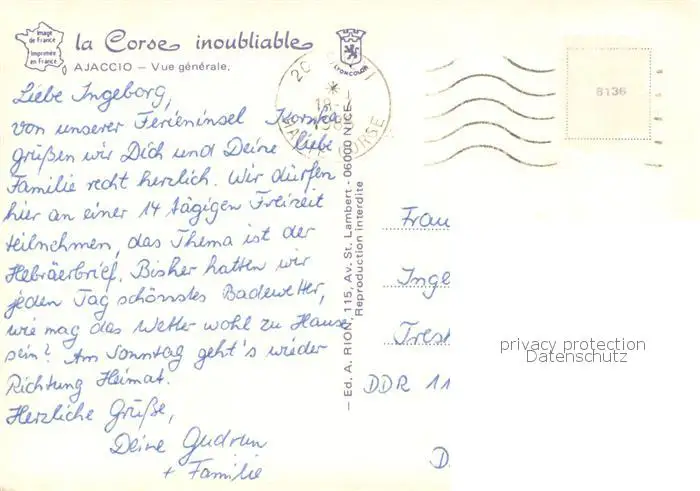 Image
de France
Imprimée
en France
la Corse inoubliable
AJACCIO — Vue générale.
LYONCOLOR
8136
Liebe Ingeborg,
von unserer Ferieninsel Korsika
grüßen wir Dich und Deine liebe
Familie recht herzlich. Wir dürfen
hier an einer 14 tägigen Freizeit
teilnehmen, das Thema ist der
Hebräerbrief. Bisher hatten wir
jeden Tag schönstes Badewetter,
wie mag das Wetter wohl zu Hause
sein? Am Sonntag geht's wieder
Richtung Heimat.
Herzliche Grüße,
Deine Gudrun
+ Familie
— Ed. A. RION, 115, Av. St. Lambert - 06000 NICE
Reproduction interdite
CORSE
Frau
Inge
Trest
DDR 11
D
privacy protection
Datenschutz